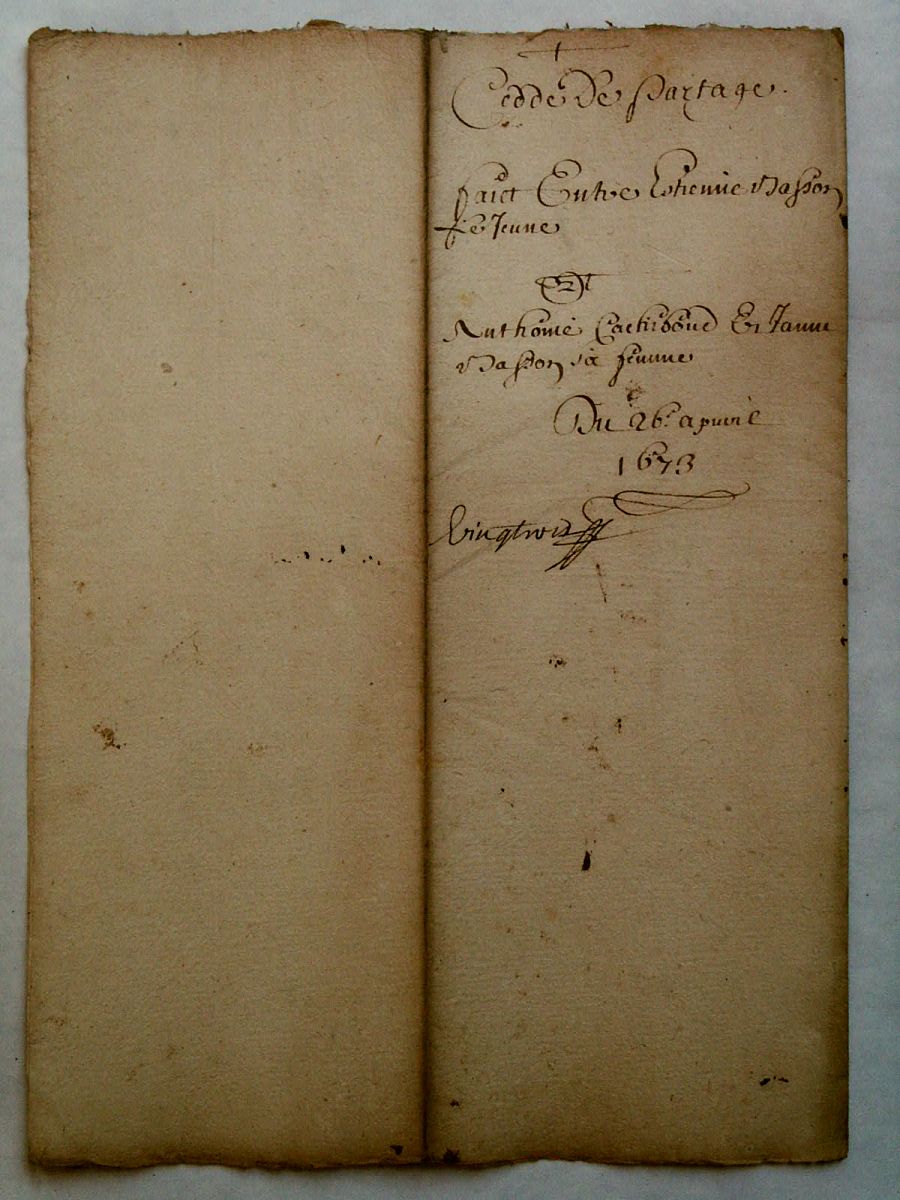 Cedde De Partage.
faict Entre Estienne Masson
Le Jeune
Et
Anthoine Et Janne
Masson sa femme
Du 26e apvril
1673
Vingtrois